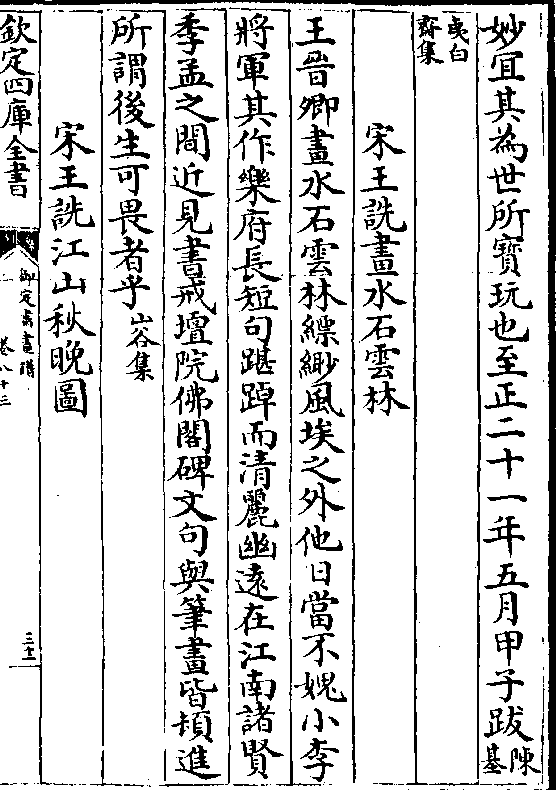 妙宜其為世所寶玩也至正二十一年五月甲子跋陳基
夷白齋集
宋王詵畫水石雲林
王晉卿畫水石雲林縹緲風埃之外他日當不媿小李
將軍其作樂府長短句踸踔而清麗幽遠在江南諸賢
季孟之間近見書戒壇院佛閣碑文句與筆畫皆頓進
所謂後生可畏者乎山谷集
宋王詵江山秋晚圖
欽定四庫全書
御定書畫譜
卷八十三